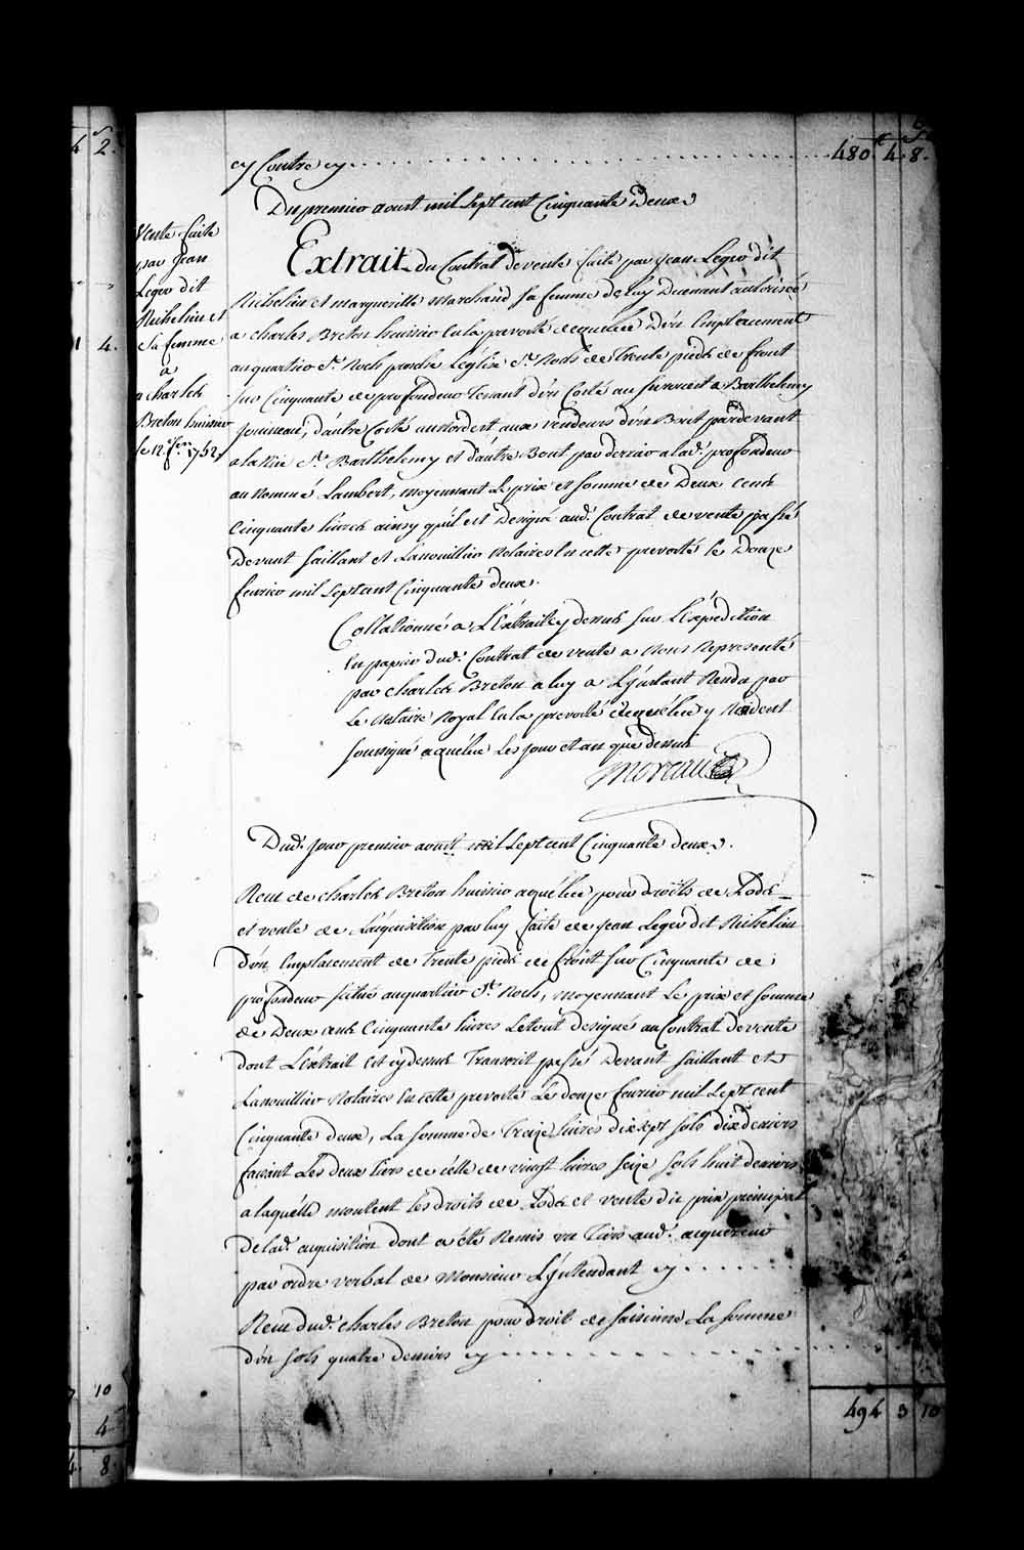 4 2.
cy Contre cy .......... 480 4. 8.
Du premier aoust mil Sept cent Cinquante Deux
Vente faite
par Jean
Leger dit
Richelieu et
Sa femme
à
charles
Breton huissier
le 12 fer. 1752
1 4.
Extrait du Contrat de vente faite par Jean Leger dit
Richelieu et margueritte marchand Sa femme De luy Duemant autorisée
a charles Breton huissier En la prevosté de quebec D'un Emplacement
au quartier St. Roch par dela Léglise St. Roch de Trente pieds de front
Sur Cinquante de profondeur Tenant d'un Costé au Surouest a Barthelemy
Jouineau, d'autre Costé au nordest aux vendeurs d'un Bout par devant
a la Rüe St. Barthelemy et d'autre Bout par derrier a lad. profondeur
au nommé Lambert, moyennant Le prix et Somme de Deux Cents
Cinquante livres ainsy qu'il est Designé aud. Contrat de vente passé
Devant Saillant et Lanouillier Notaires En cette prevosté le Douze
fevrier mil Sept cent Cinquante deux.
Collationné a L'Extrait cy dessus Sur L'Expedition
En papier dud. Contrat de vente a Nous Representé
par charles Breton a luy a L'ynstant Rendu par
Le Notaire Royal En la prevosté de quebec y Resident
Soussigné a quebec Les jour et an que dessus
Moreau
Dud. jour premier aoust mil Sept cent Cinquante deux.
Reçu de charles Breton huissier a quebec pour droits de Lods
et vente de L'aquisition par luy faite de Jean Leger dit Richelieu
D'un Emplacement de Trente pieds de front Sur Cinquante de
profondeur Situé au quartier St. Roch, moyennant Le prix et Somme
de Deux cents Cinquante livres Le tout designé au Contrat de vente
dont L'Extrait Est cy dessus Transcrit passé Devant Saillant et
Lanouillier Notaires En cette prevosté Le douze fevrier mil Sept cent
Cinquante deux, La Somme de Treize livres dix sept Sols dix deniers
faisant Les deux tiers de celle de vingt livres Seize Sols huit deniers
a laquelle montent Les droits de Lods et vente du prix principal
De lad. acquisition dont a été Remis un Tiers aud. acquereur
par ordre verbal de Monsieur L'yntendant cy .......
Reçu dud. charles Breton pour droit de Saisinne La Somme
d'un Sols quatre deniers cy ..........
10
4
4. 8.
494 3 10